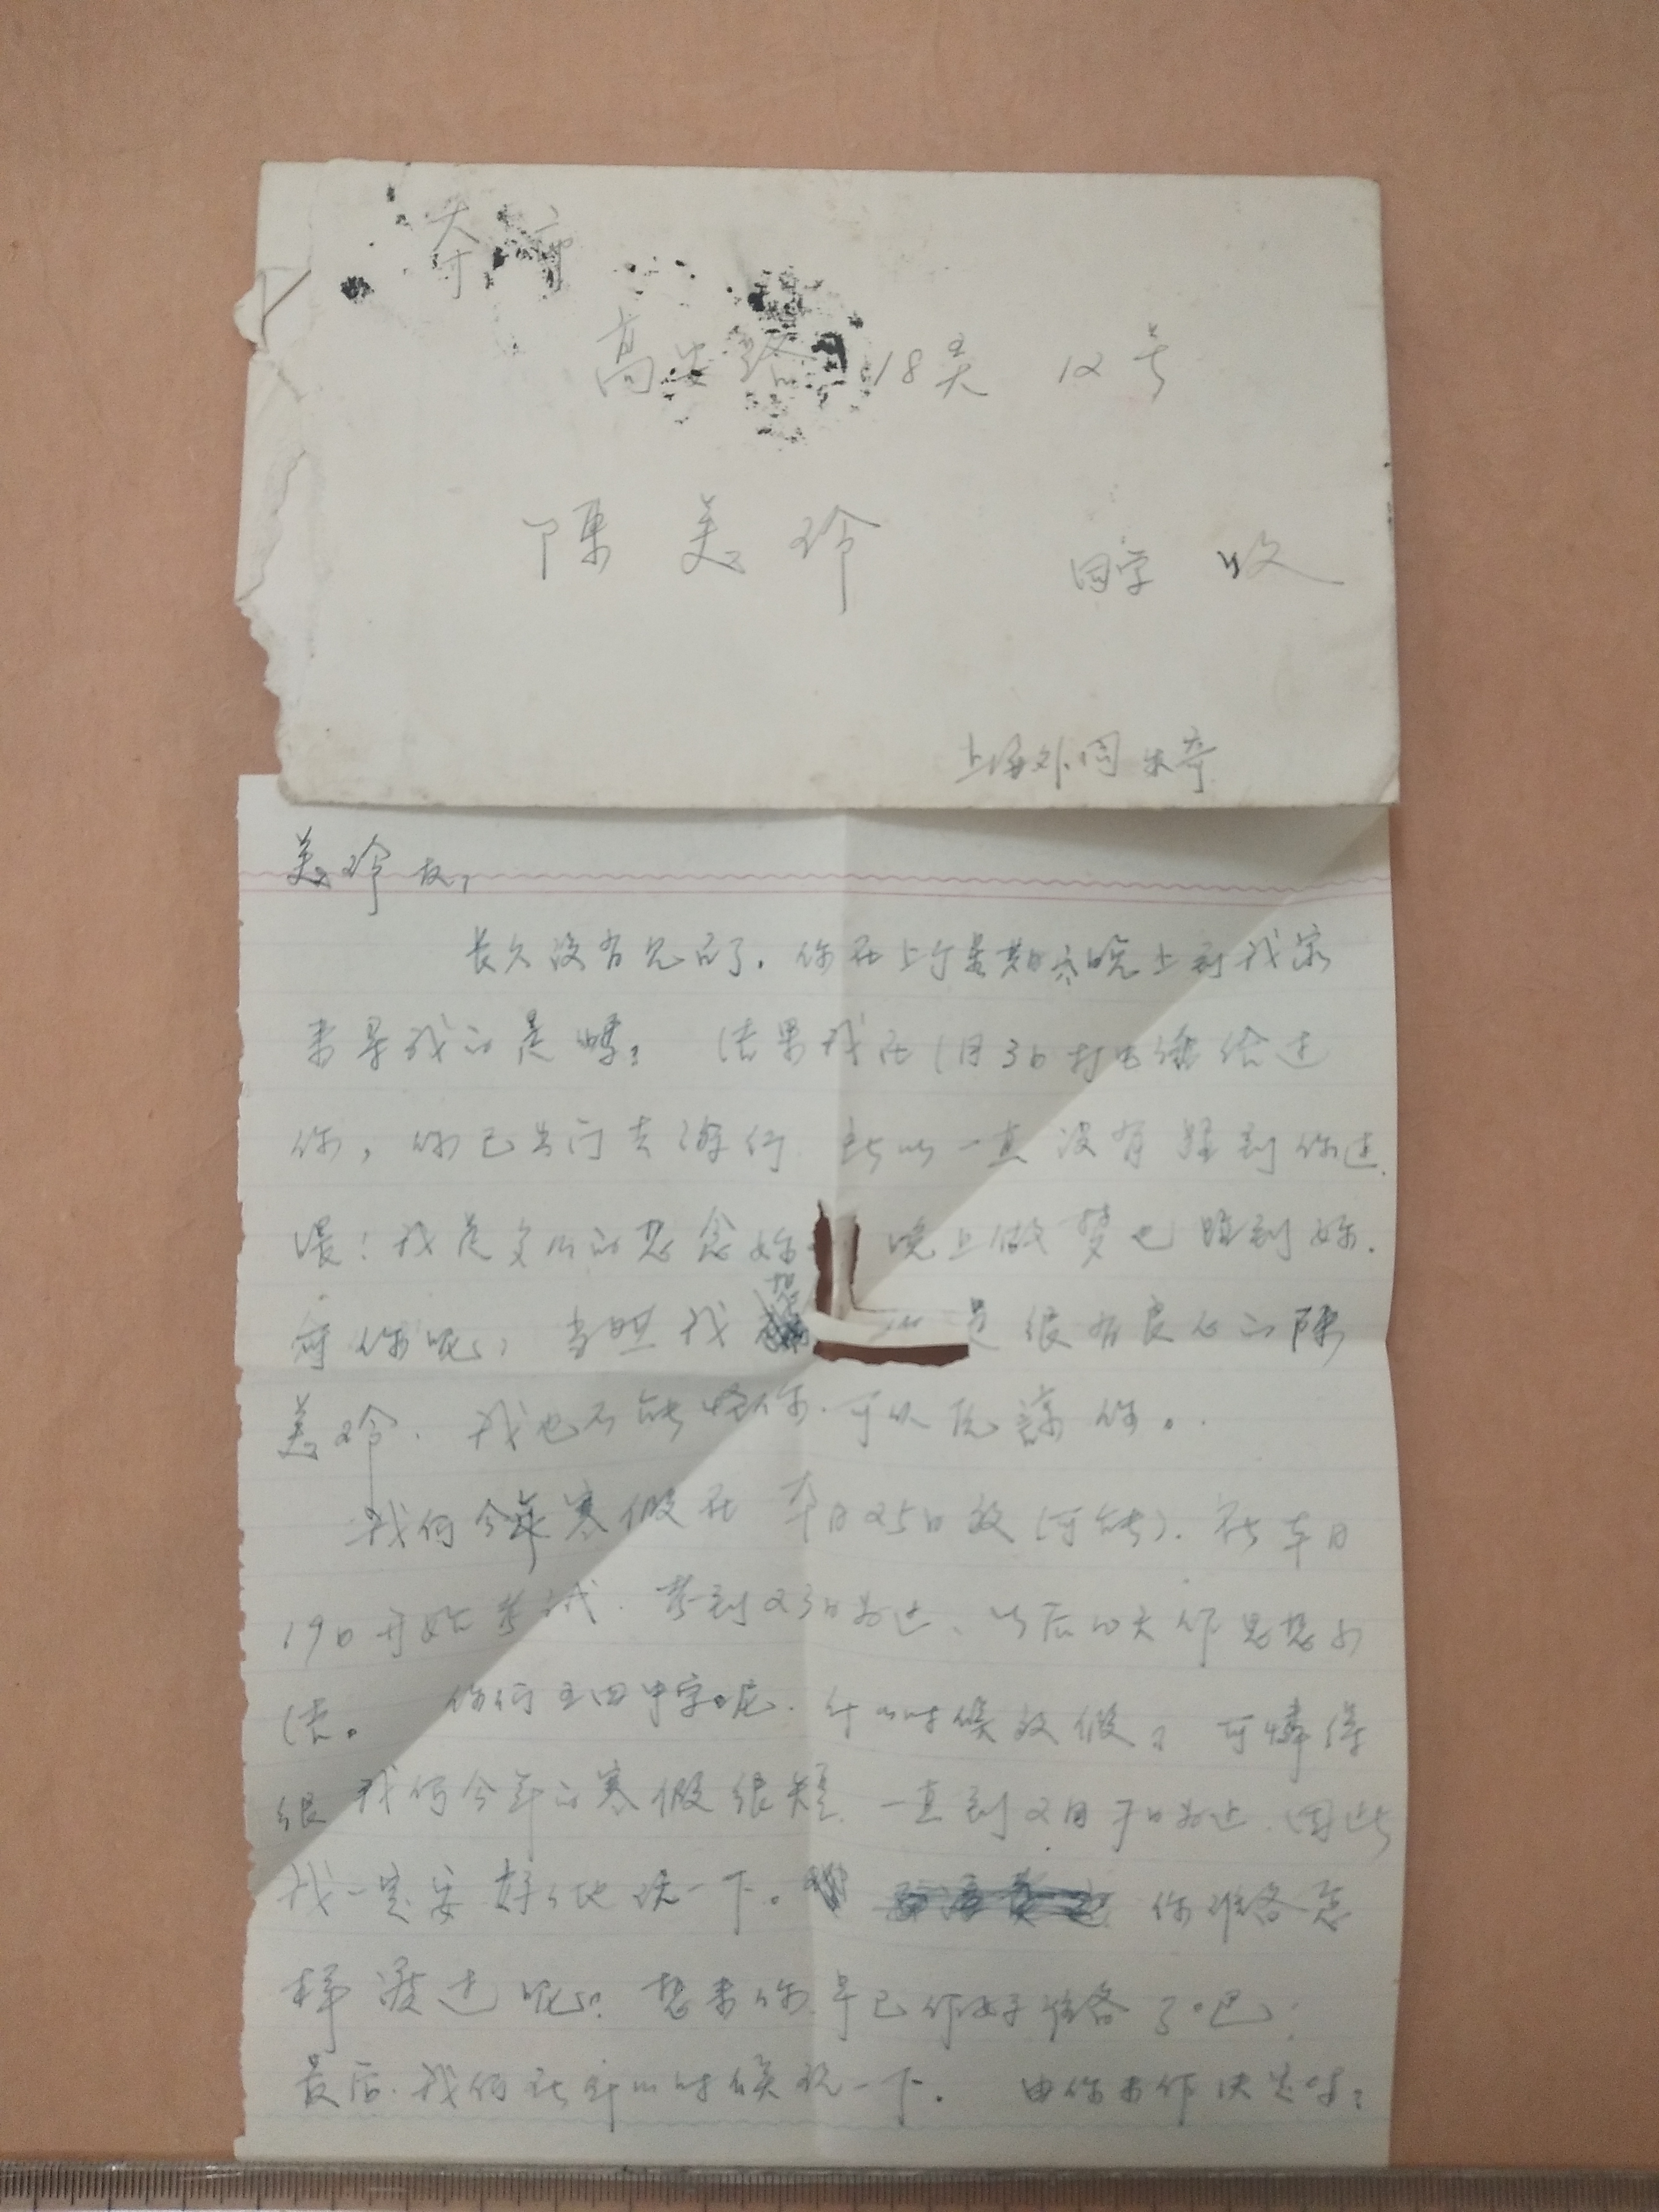 本市
高安路 18弄 12号
陈美玲 同学 收
上海外国
美玲友,
长久没有见面了。你在上个星期六晚上到我家
来 我 是 结果我在1月3日打电话给过
你,你已出门去 一直没有碰到你过.
我是 的想念妳 晚上做梦也碰到妳.
你呢, 当然我 是很有良心的陈
美玲. 我也不能怪你. 可以原谅你。
我们今年寒假在本月25日放(可能). 在本月
19日开始考试. 考到23日为止、以后的大作思想小
结。 你们五四中学呢. 什么时候放假? 可怜得
很我们今年的寒假很短. 一直到2月7日为止. 因此
我一定要好好地玩一下。 你准备怎
样渡过呢? 想来你早已作好准备了吧!
最后.我们在什么时候玩一下. 由你来作决定